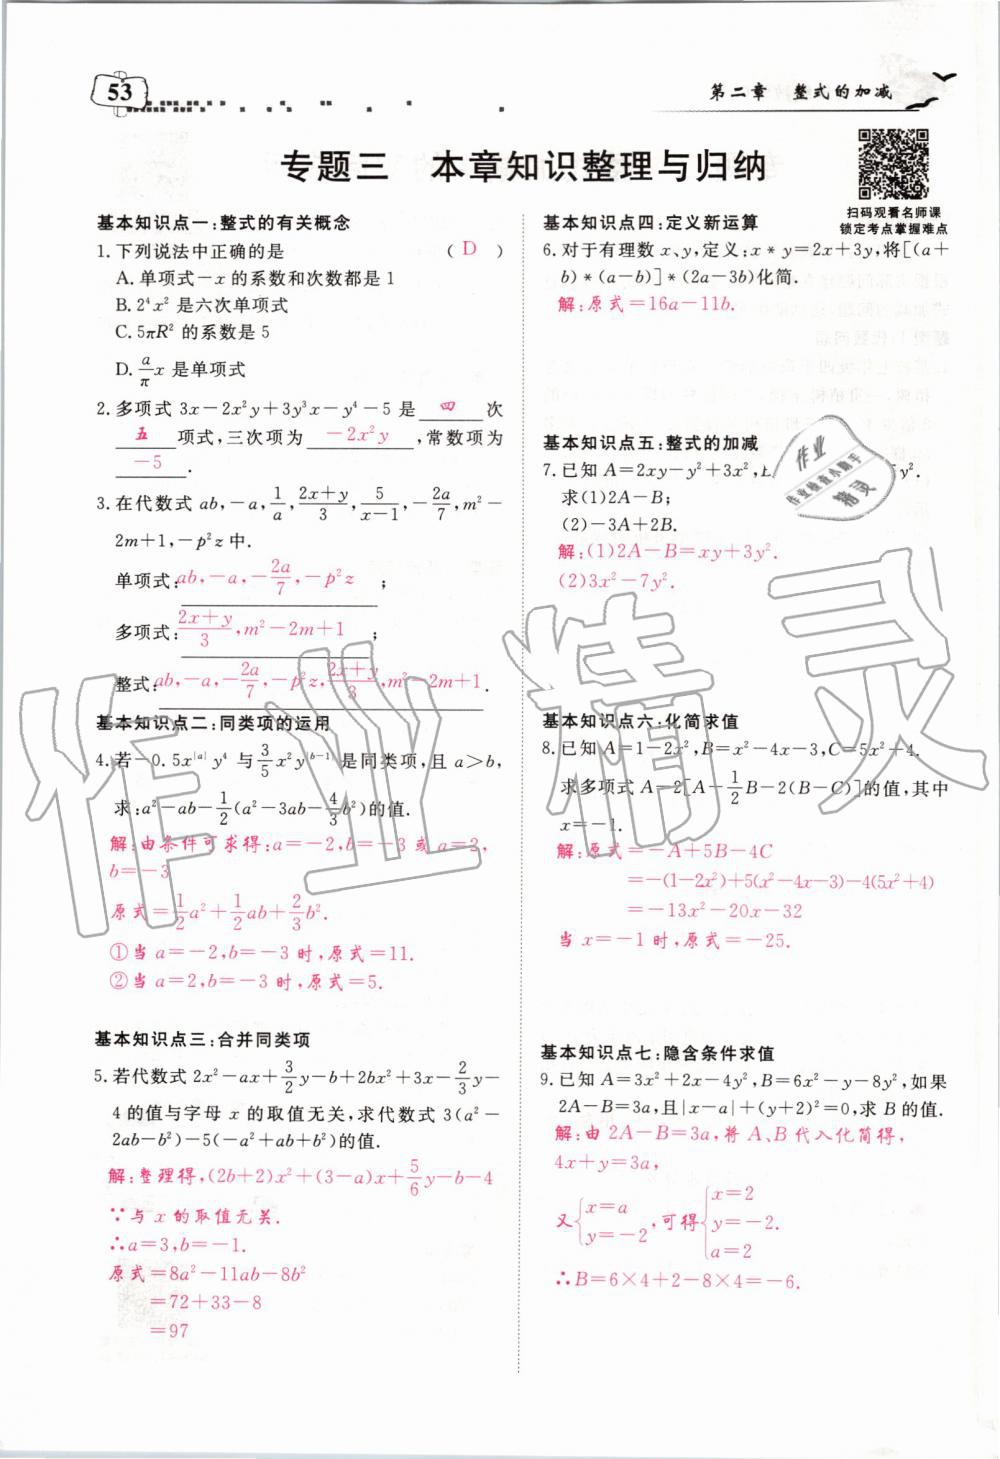 53
第二章 整式的加减
专题三 本章知识整理与归纳
扫码观看名师课
锁定考点掌握难点
基本知识点一:整式的有关概念
1.下列说法中正确的是 ( D )
A.单项式-x 的系数和次数都是 1
B.2⁴x² 是六次单项式
C.5πR² 的系数是 5
D.a/π x 是单项式
2.多项式 3x-2x²y+3y³x-y⁴-5 是 四 次
五 项式,三次项为 -2x²y ,常数项为
-5 .
3.在代数式 ab,-a,1/a,(2x+y)/3,5/(x-1),-2a/7,m²-
2m+1,-p²z 中.
单项式:ab,-a,-2a/7,-p²z ;
多项式:(2x+y)/3,m²-2m+1 ;
整式:ab,-a,-2a/7,-p²z,(2x+y)/3,m²-2m+1 .
基本知识点二:同类项的运用
4.若-0.5x^|a| y⁴ 与 3/5 x²y^|b-1| 是同类项,且 a>b,
求:a²-ab-1/2(a²-3ab-4/3 b²)的值.
解:由条件可求得:a=-2,b=-3 或 a=2,
b=-3
原式=1/2 a²+1/2 ab+2/3 b².
①当 a=-2,b=-3 时,原式=11.
②当 a=2,b=-3 时,原式=5.
基本知识点三:合并同类项
5.若代数式 2x²-ax+3/2 y-b+2bx²+3x-2/3 y-
4 的值与字母 x 的取值无关,求代数式 3(a²-
2ab-b²)-5(-a²+ab+b²)的值.
解:整理得,(2b+2)x²+(3-a)x+5/6 y-b-4
∵与 x 的取值无关.
∴a=3,b=-1.
原式=8a²-11ab-8b²
=72+33-8
=97
基本知识点四:定义新运算
6.对于有理数 x、y,定义:x*y=2x+3y,将[(a+
b)*(a-b)]*(2a-3b)化简.
解:原式=16a-11b.
基本知识点五:整式的加减
7.已知 A=2xy-y²+3x², y².
求(1)2A-B;
(2)-3A+2B.
解:(1)2A-B=xy+3y².
(2)3x²-7y².
基本知识点六:化简求值
8.已知 A=1-2x²,B=x²-4x-3,C=5x²+4.
求多项式 A-2[A-1/2 B-2(B-C)]的值,其中
x=-1.
解:原式=-A+5B-4C
=-(1-2x²)+5(x²-4x-3)-4(5x²+4)
=-13x²-20x-32
当 x=-1 时,原式=-25.
基本知识点七:隐含条件求值
9.已知 A=3x²+2x-4y²,B=6x²-y-8y²,如果
2A-B=3a,且|x-a|+(y+2)²=0,求 B 的值.
解:由 2A-B=3a,将 A、B 代入化简得,
4x+y=3a,
又{x=a y=-2,可得{x=2 y=-2. a=2
∴B=6×4+2-8×4=-6.
作业精灵
作业
作业检查小助手
精灵